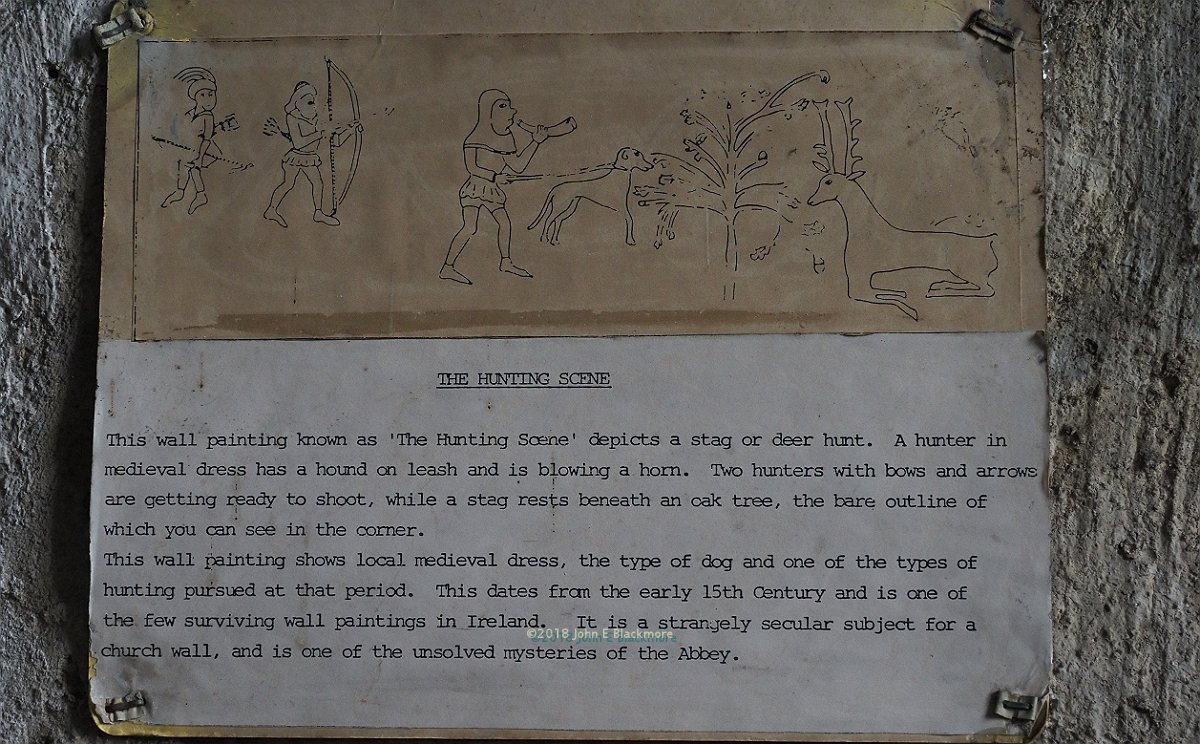 THE HUNTING SCENE
This wall painting known as 'The Hunting Scene' depicts a stag or deer hunt. A hunter in
medieval dress has a hound on leash and is blowing a horn. Two hunters with bows and arrows
are getting ready to shoot, while a stag rests beneath an oak tree, the bare outline of
which you can see in the corner.
This wall painting shows local medieval dress, the type of dog and one of the types of
hunting pursued at that period. This dates from the early 15th Century and is one of
the few surviving wall paintings in Ireland. It is a strangely secular subject for a
©2018 John E Blackmore
church wall, and is one of the unsolved mysteries of the Abbey.